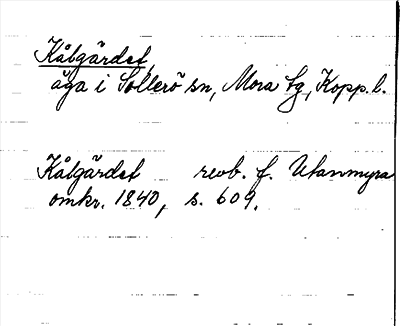 Kålgärdet
äga i Sollerö sn, Mora tg, Kopp. l.
Kålgärdet revb. f. Utanmyra
omkr. 1840, s. 609.